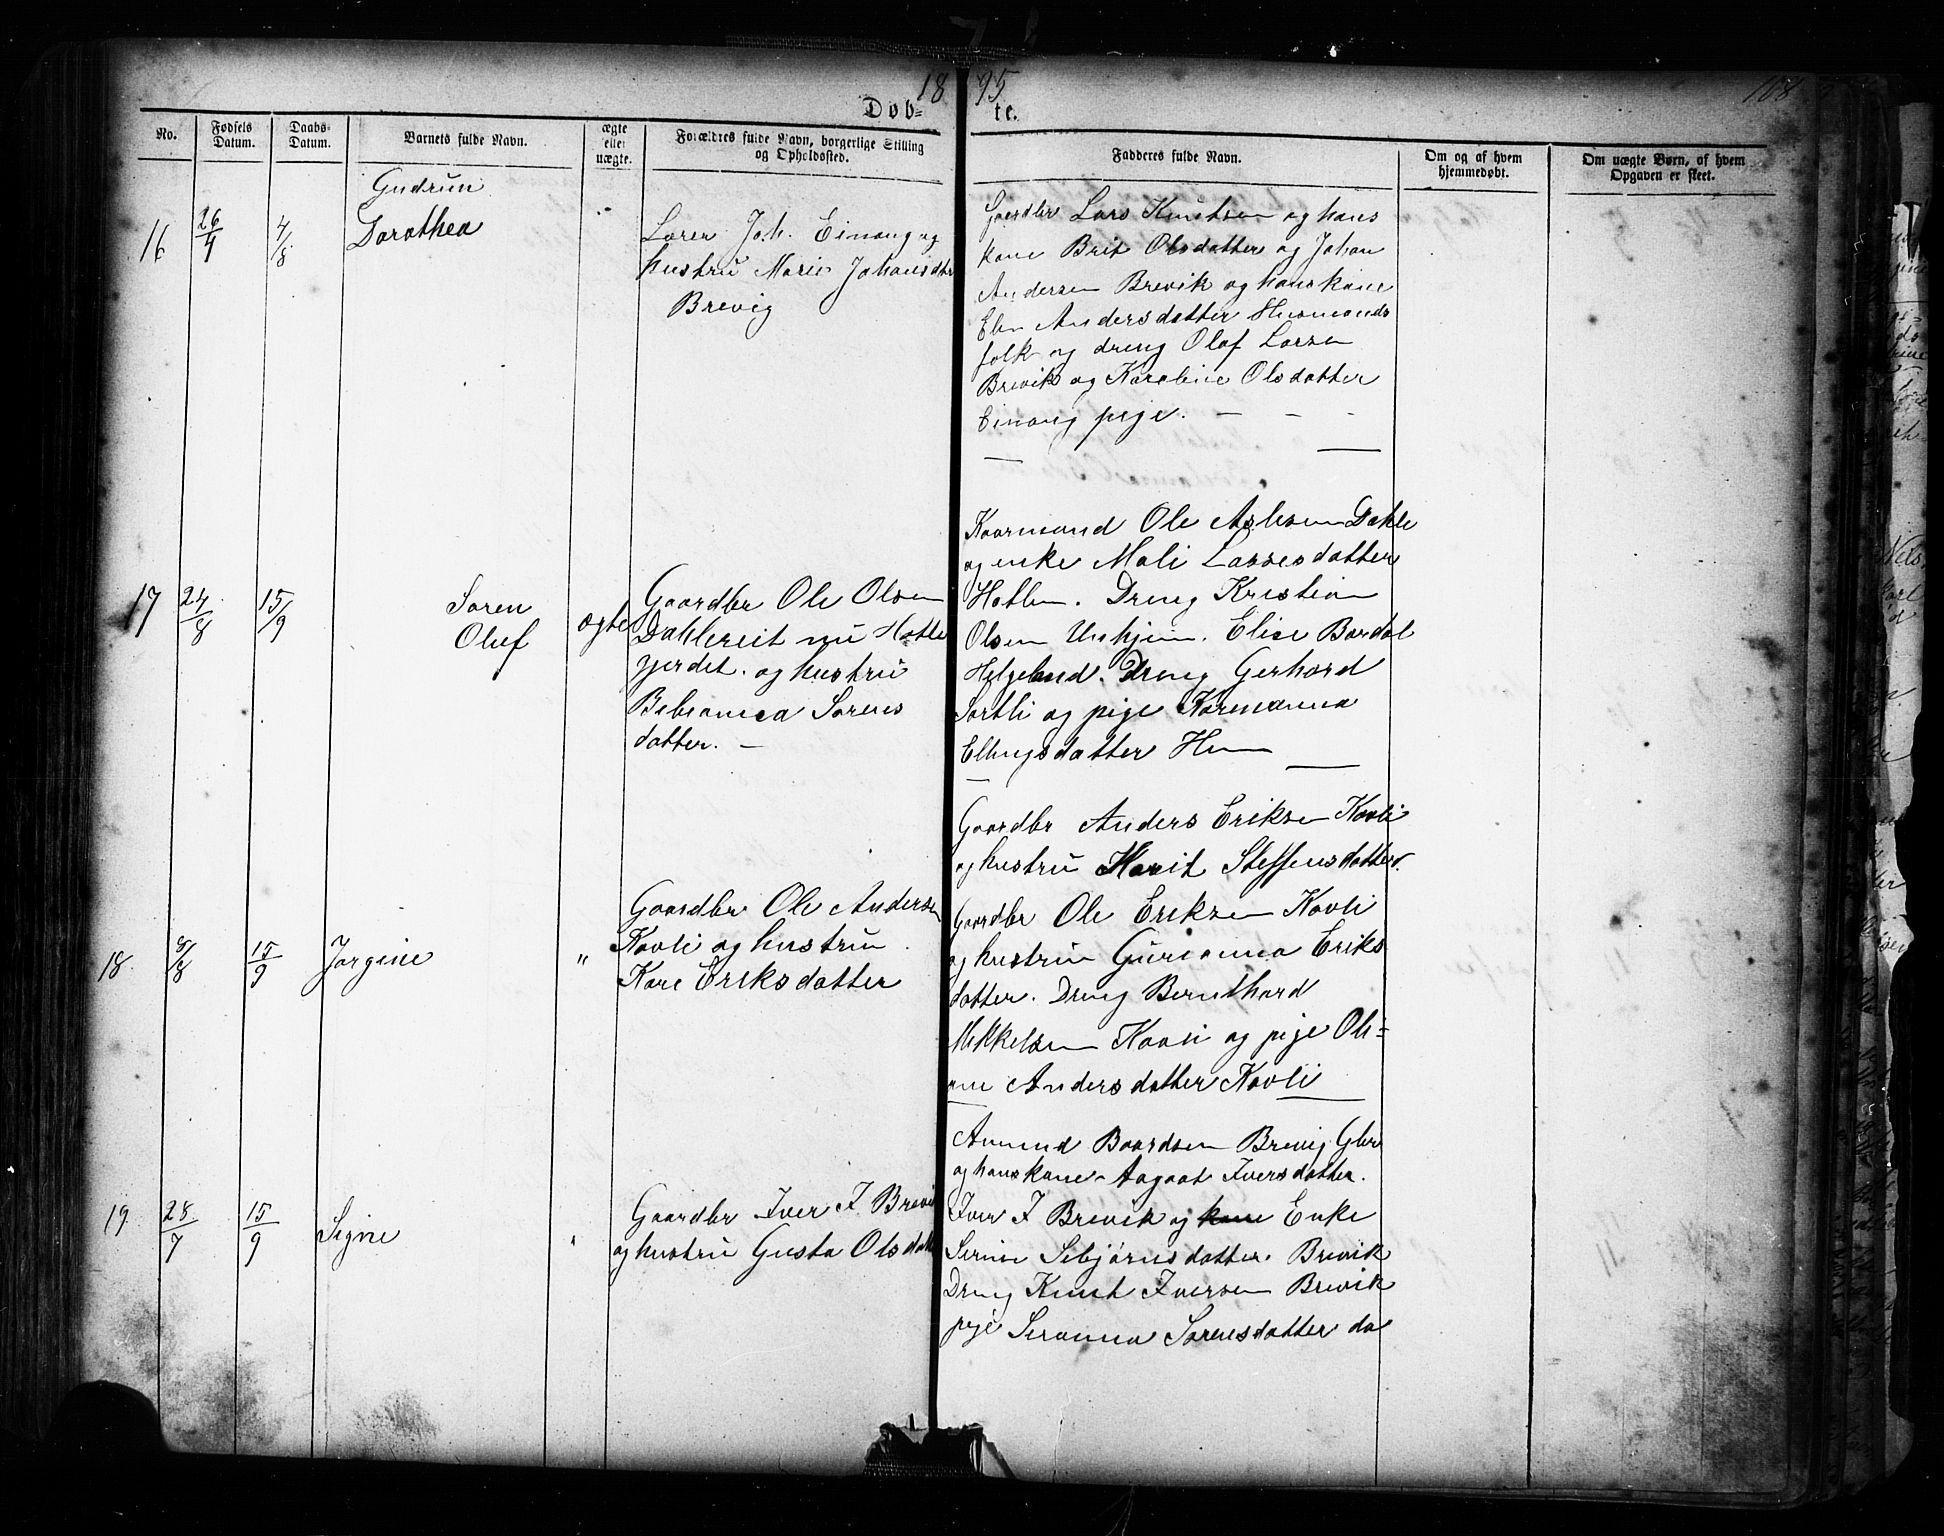 1895
108
Døbte.
No.
Fødsels Datum.
Daabs-Datum.
Barnets fulde Navn.
ægte eller uægte.
Forældres fulde Navn, borgerlige Stilling og Opholdssted.
Fadderes fulde Navn.
Om og af hvem hjemmedøbt.
Om uægte Børn, af hvem Opgaven er skeet.
16
26/4
4/8
Gudrun
Dorothea
Lærer Joh. Einang og
hustru Marie Johansdtr
Brevig
Gaardbr Lars Knutsen og hans
kone Brit Olsdatter og Johan
Andersen Brevik og hans kone
Elen Andersdatter Husmands
folk og dreng Olaf Larsen
Brevik og Karoline Olsdatter
Einang pige. - - -
17
24/8
15/9
Søren
Oluf
ægte
Gaardbr Ole Olsen
Dahlereit nu Hatle
gjerdet. og hustru
Bebianna Sørens
datter. -
Kaarmand Ole Aslesen Dahle
og enke Mali Lassesdatter
Hatlen. Dreng Kristian
Olsen Unhjem. Elise Bardal
Helgeland. Dreng Gerhard
Sortli og pige Karenanna
Ellingsdatter Hen
18
8/8
15/9
Jørgine
"
Gaardbr Ole Andersen
Kavli og hustru
Kari Eriksdatter
Gaardbr Anders Eriksen Kavli
og hustru Marit Steffensdatter.
Gaardbr Ole Eriksen Kavli
og hustru Gurianna Eriks
datter. Dreng Bernthard
Mikkelsen Kavli og pige Oli=
ane Andersdatter Kavli
19
28/7
15/9
Signe
"
Gaardbr Iver I Brevik
og hustru Gusta Olsdatt
Amund Baardsen Brevig Gbr
og hans kone Aagaat Iversdatter.
Iver I Brevik og kone Enke
Serine Sebjørnsdatter. Brevik
Dreng Knut Iversen Brevik
pige Serianna Sørensdatter do